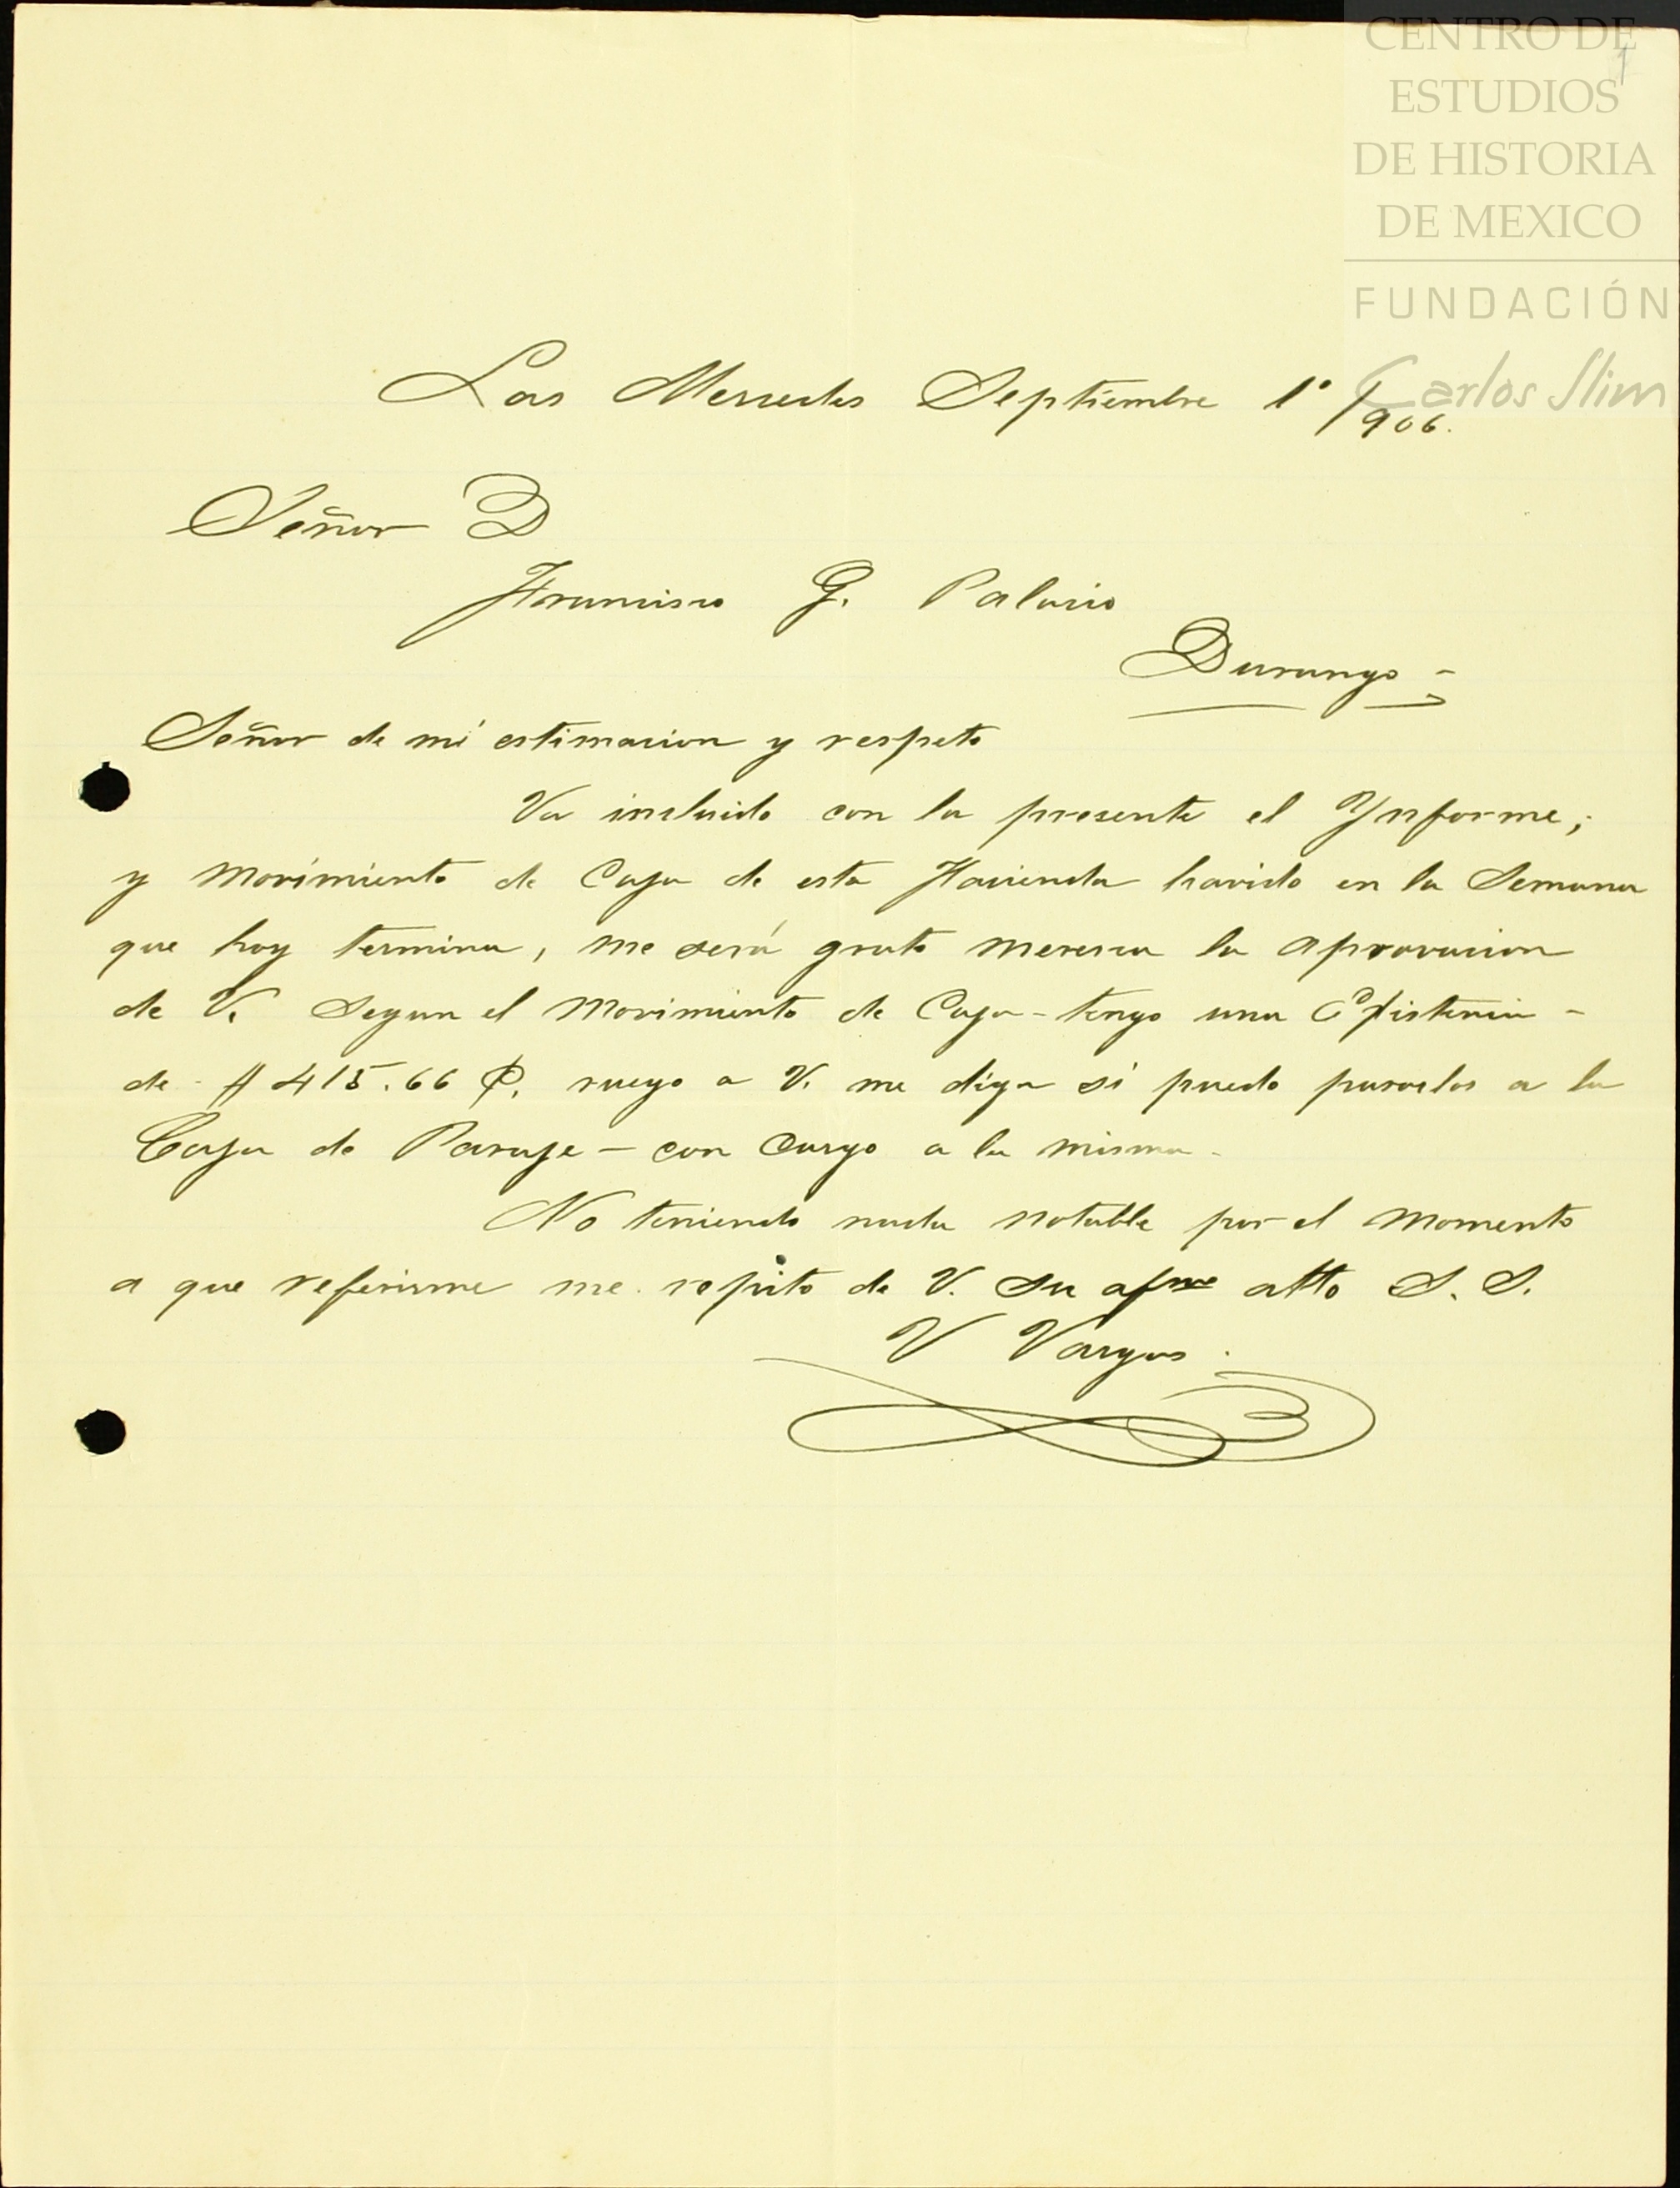 CENTRO DE
ESTUDIOS
DE HISTORIA
DE MEXICO
FUNDACIÓN
Carlos Slim
1
Las Mercedes Septiembre 1º/906.
Señor D
Francisco G. Palacio
Durango-
Señor de mi estimacion y respeto
Va incluido con la presente el Ynforme;
y Movimiento de Caja de esta Hacienda havido en la Semana
que hoy termina, me será grato meresca la Aprovacion
de V. Segun el Movimiento de Caja-tengo una Existencia-
de-$ 415.66 ¢. ruego a V. me diga si puedo pasarlos a la
Casa de Paraje-con Cargo a la misma-
No teniendo nada notable por el Momento
a que referirme me repito de V. Su afmo atto S. S.
V Vargas.